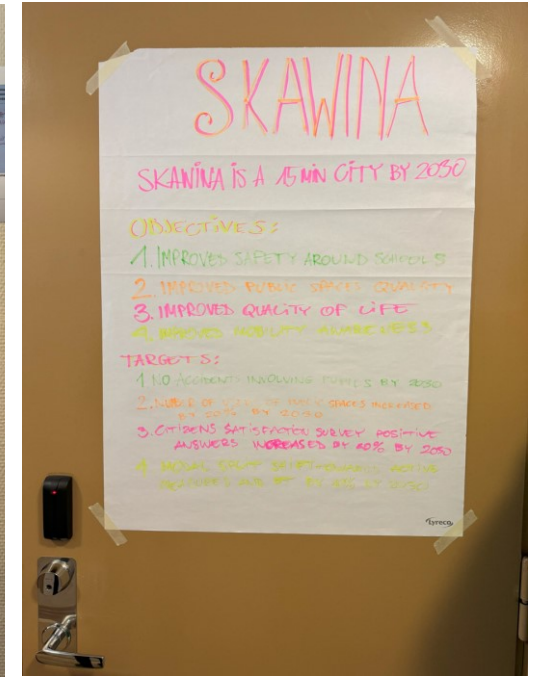 SKAWINA
SKAWINA IS A 15 MIN CITY BY 2030
OBJECTIVES:
1. IMPROVED SAFETY AROUND SCHOOLS
2. IMPROVED PUBLIC SPACES QUALITY
3. IMPROVED QUALITY OF LIFE
4. IMPROVED MOBILITY
TARGETS:
1 NO ACCIDENTS INVOLVING PUPILS BY 2030
2. OF PUBLIC SPACES INCREASED
BY 20% BY 2030
3. CITIZENS SATISFACTION SURVEY POSITIVE
ANSWERS INCREASED BY 20% BY 2030
4. MODAL SPLIT SHIFT TOWARDS ACTIVE
AND PT BY BY 2030
Lyreco